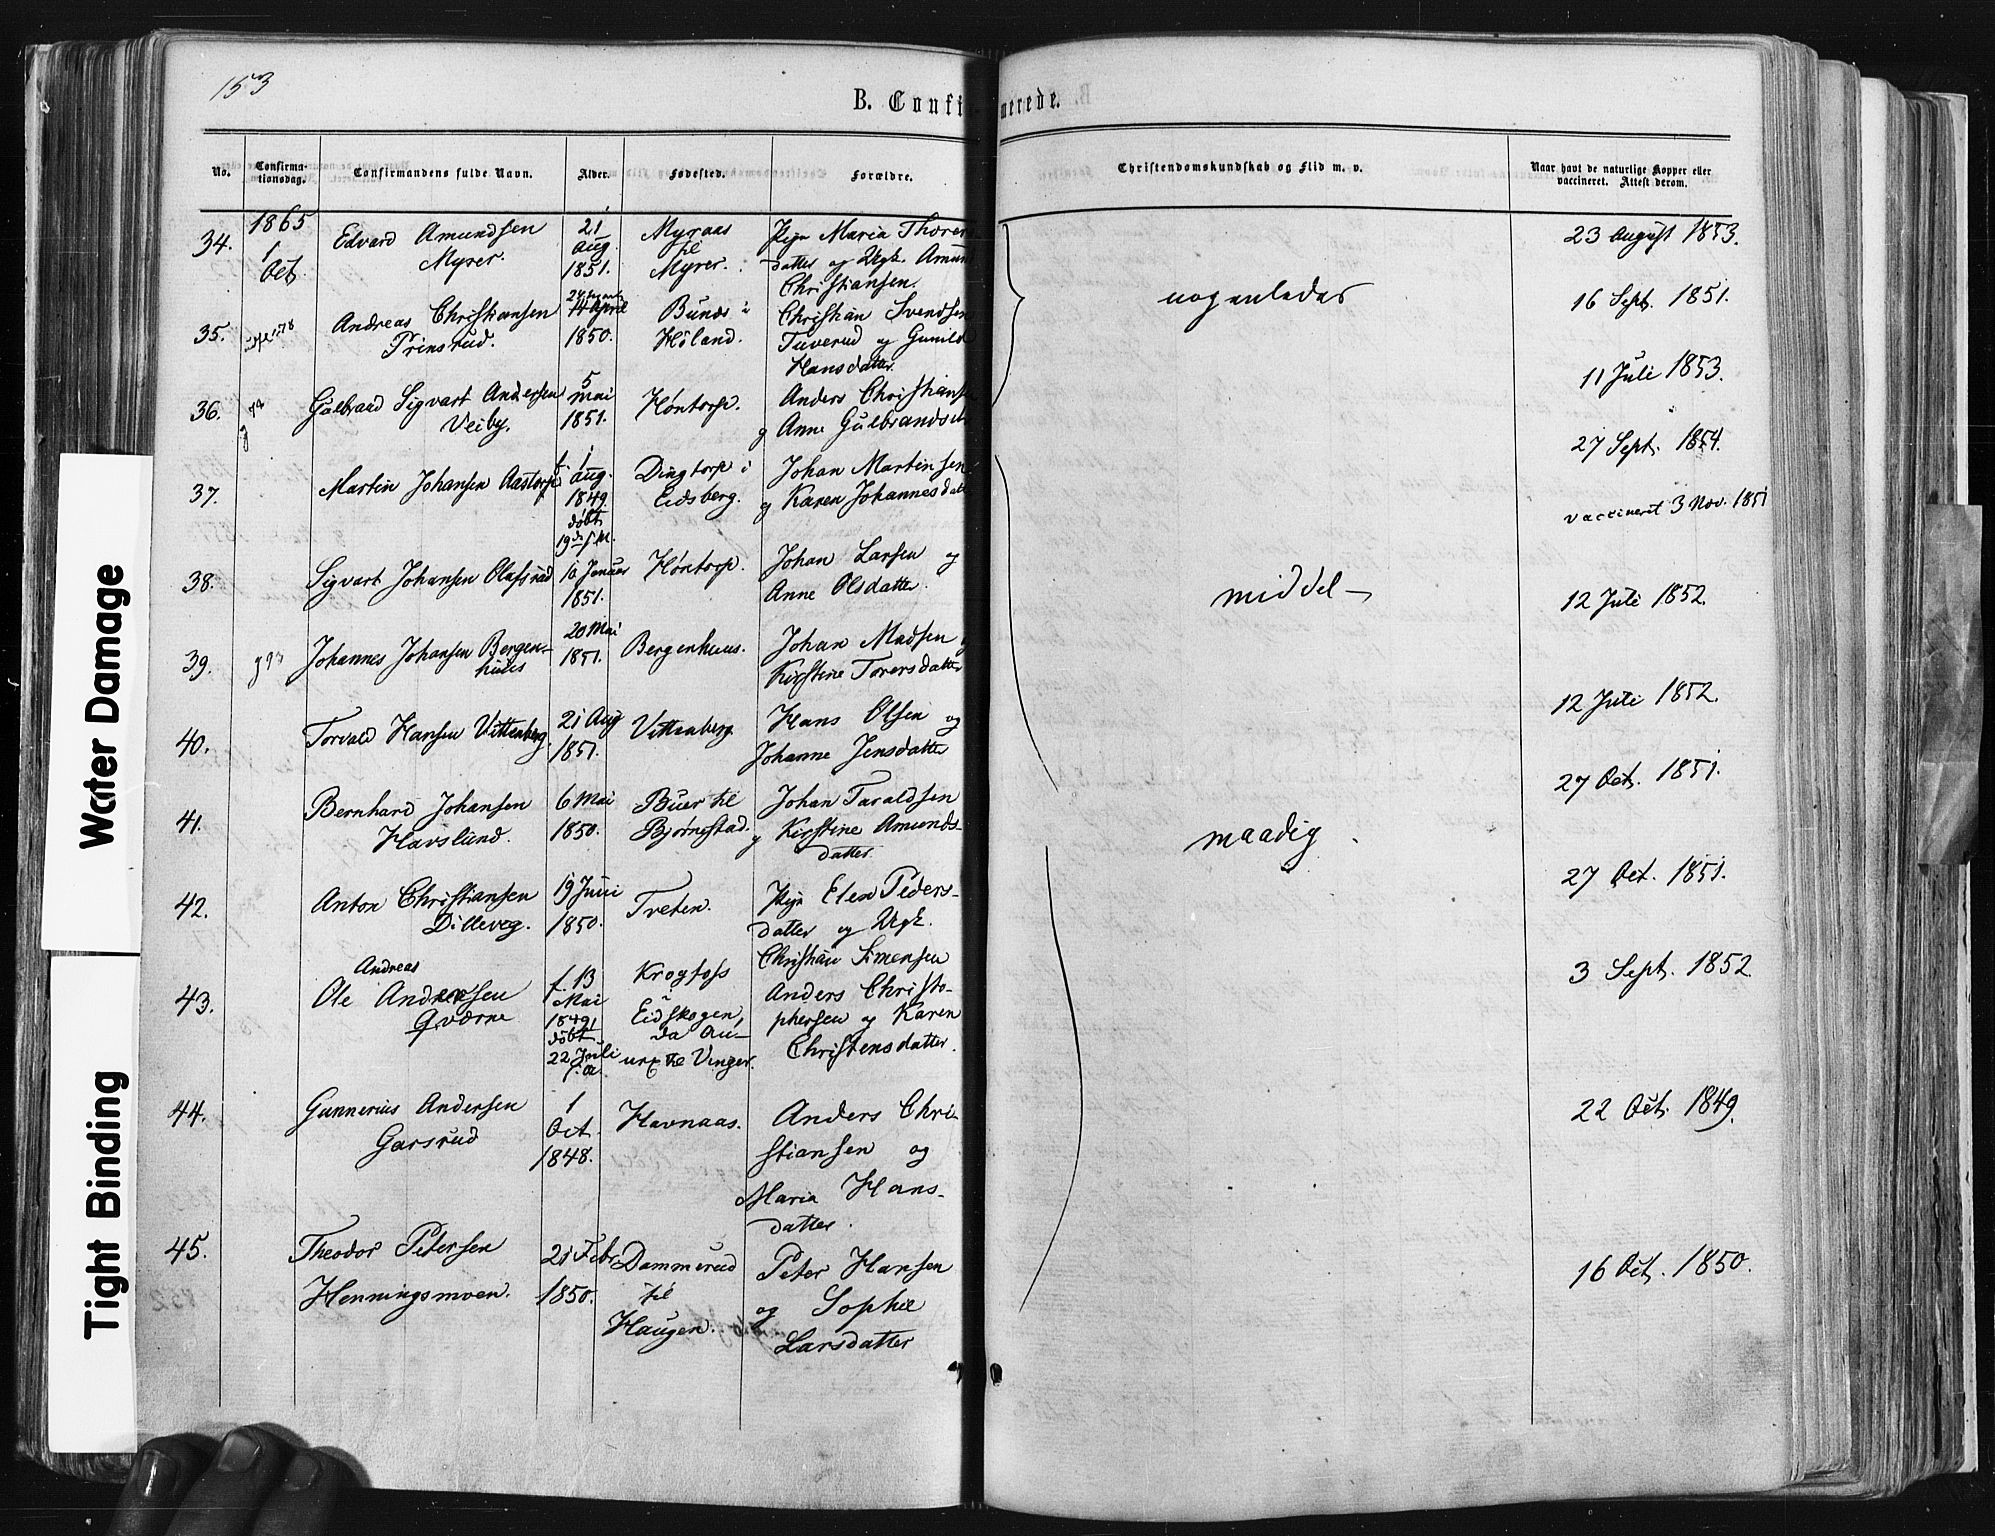 153
B. Confi merede.
No.
Confirma-
tionsdag.
Confirmandens fulde Navn.
Alder.
Fødested.
Forældre.
Christendomskundskab og Flid m. v.
Naar havt de naturlige Kopper eller
vaccineret. Attest derom.
34.
1865
1
Oct.
Edvard Amundsen
Myrer.
21
Aug.
1851.
Myraas
til
Myrer.
Pign Maria Thorers
datter og Ugk. Amun
Christiansen.
23 August 1853.
35.
Andreas Christiansen
Prinsrud.
April
1850.
Bunds i
Høland.
Christian Svendsen
Tuverud og Gunild
Hansdatter
nogenledes
16 Sept. 1851.
36.
Gulbrand Sigvart Andersen
Veiby.
5
Mai
1851.
Høntorp.
Anders Christianse
og Anne Gulbrandsd
11 Juli 1853.
37.
Martin Johansen Aastorp
f. 1
Aug.
1849
døbt
19 d. s. M.
Dingtorp i
Eidsberg.
Johan Martinsen
og Karen Johannesdatt
27 Sept. 1854.
38.
Sigvart Johansen Olafsrud
10 Januar
1851.
Høntorp.
Johan Larsen og
Anne Olsdatter
middel
vaccineret 3 Nov. 1851
39.
Johannes Johansen Bergen-
huus
20 Mai
1851.
Bergenhuus.
Johan Madsen og
Kirstine Torersdatter
12 Juli 1852.
40.
Torvald Hansen Vittenberg
21 Aug
1851.
Vittenberg.
Hans Olsen og
Johanne Jensdatter
12 Juli 1852.
41.
Bernhard Johansen
Havslund.
6 Mai
1850.
Buer til
Bjørnstad.
Johan Taraldsen
og Kirstine Amunds-
datter.
maadig.
27 Oct. 1851.
42.
Anton Christiansen
Dilleveg.
19 Juni
1850.
Treten.
Pign Elen Peders-
datter og Ugk.
Christian Simensen
27 Oct. 1851.
43.
Andreas
Ole Andersen
Qværne
f. 13
Mai
1849,
døbt
22 Juli
s. a.
Krogfoss
i
Eidskogen,
da An-
nex til Vinger.
Anders Christo-
phersen og Karen
Christensdatter.
3 Sept. 1852
44.
Gunnerius Andersen
Garsrud
1
Oct.
1848.
Havnaas.
Anders Chri-
stiansen og
Maria Hans-
datter.
22 Oct. 1849.
45.
Theodor Petersen
Henningsmoen.
21 Febr
1850.
Dammerud
til
Haugen.
Peter Hansen
og Sophie
Larsdatter
16 Oct. 1850.
Water Damage
Tight Binding